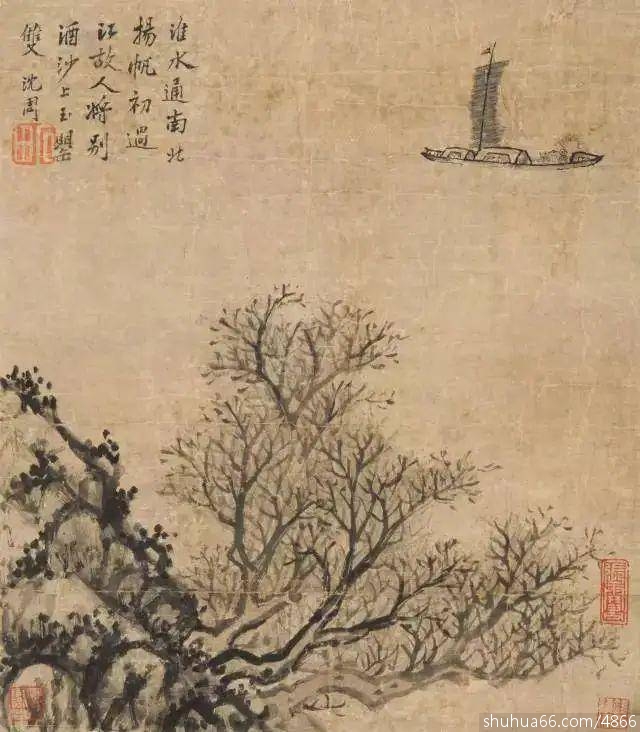 淮水通南北
揚帆初過
江故人將別
酒沙上玉罌
雙 沈周
shuhua66.com/4866